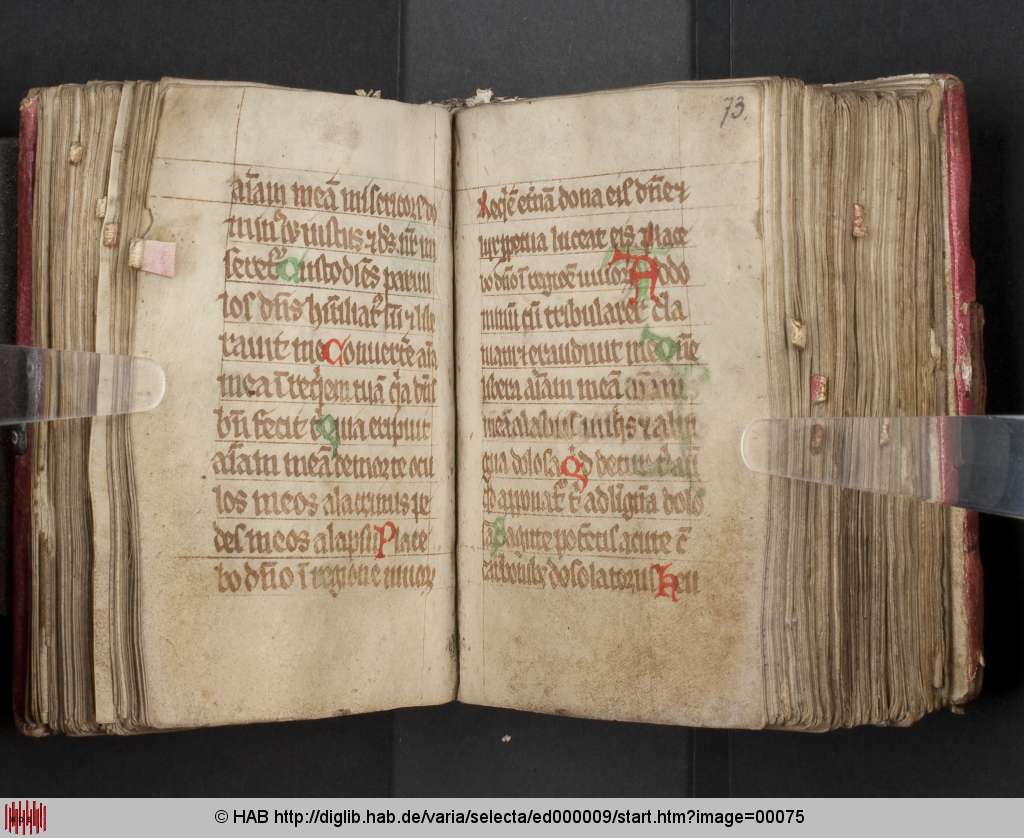 aīam meā misericors do
min⁹ ⁊ iustus ⁊ ds̄ nr̄ mi
seret᷑ Custodiēs paruu
los dn̄s hūiliat᷑ sū ⁊ libe
rauit me Conuert̄e aīa
mea ī req̄iem tuā q̄a dn̄s
bn̄ fecit t̄ Quia eripuit
aīam meā de morte ocu
los meos a lacrimis pe
des meos a lapsu Place
bo dn̄o ī regione uiuoꝝ
73.
Req̄ē et̄nā dona eis dn̄e ⁊
lux ꝑpetua luceat eis Place
bo dn̄o ī regiōe uiuoꝝ Ad do
minū cū tribularer cla
maui ⁊ exaudiuit me Dn̄e
libera aīam meā
meā a labiis iniq̄s ⁊ a lin
gua dolosa Qd detur t̄ aut
qd apponat᷑ t̄ ad liguā dolo
sā Sagitte potētis acute c̄
carbonibꝫ desolatoriis Heu
© HAB http://diglib.hab.de/varia/selecta/ed000009/start.htm?image=00075